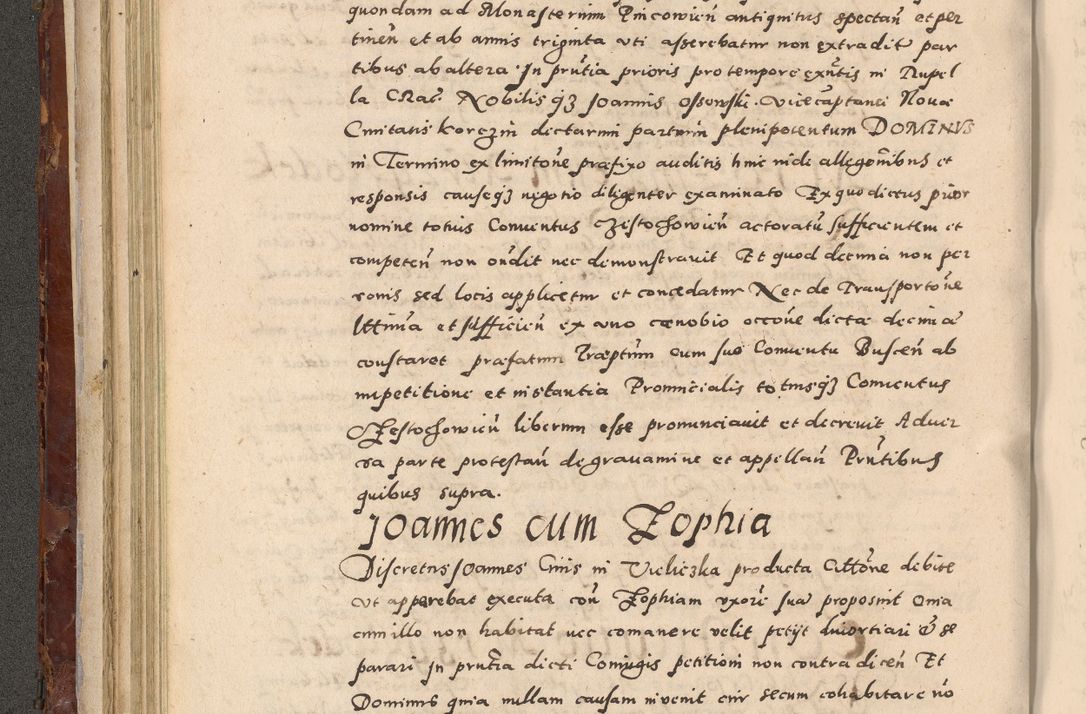 quondam ad Monasterium Pincowień antiquitus spectań et per
tineń et ab annis triginta uti asserebatur non extradit par
tibus ab altera In pñtia prioris pro tempore exñtis in Rupel
la Crac. Nobilis q3 Joannis Ossowski Vicecaptanei Novae
Civitatis Korczin dictarum partium plenipotentum DOMINVS
in Termino ex limitoñe præfixo auditis hinc inde allegoñibus et
responsis causeq3 negotio diligenter examinato Ex quo dictus prior
nomine totius Conventus Czestochowień actoratũ sufficientem et
competeń non ondit nec demonstravit Et quod decima non per
sonis sed locis applicetur et concedatur Nec de Transportoñe
Lttima et sufficień ex uno cœnobio occoñe dictæ decimæ
constaret præfatum Præptum cum suo Conventu Busceń ab
impetitione et instantia Provincialis totiusq3 Conventus
Czestochowień liberum esse pronunciavit et decrevit Adver
sa parte protestań de gravamine et appellań Pñtibus
quibus supra.
Joannes cum Zophia
Discretus Joannes Civis in Vieliczka producta Cittõne debite
ut apperebat executa coñ Zophiam uxorẽ suã proposuit Quia
cum illo non habitat nec comanere velit petijt divortiari & se
parari In pñtia dicti Coniugis petitioni non contradiceń Et
Dominus quia nullam causam invenit cur secum cohabitare nõ